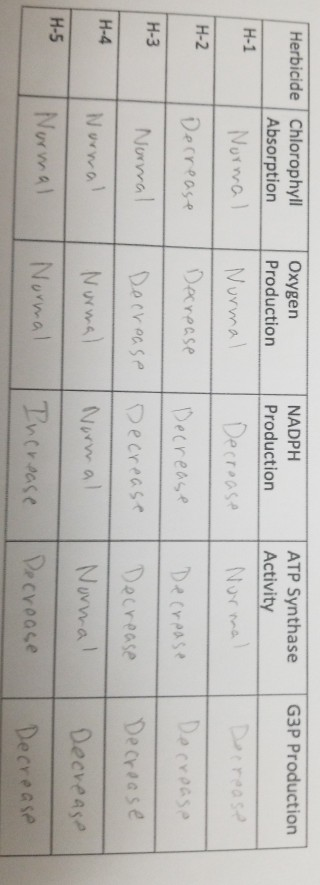 Herbicide Chlorophyll Absorption Oxygen Production NADPH Production ATP Synthase Activity G3P Production
H-1 Normal Normal Decrease Normal Decrease
H-2 Decrease Decrease Decrease Decrease Decrease
H-3 Normal Decrease Decrease Decrease Decrease
H-4 Normal Normal Normal Normal Decrease
H-5 Normal Normal Increase Decrease Decrease